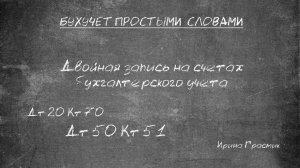 БУХУЧЕТ ПРОСТЫМИ СЛОВАМИ
Двойная запись на счетах
бухгалтерского учета
Дт 20 Кт 70
Дт 50 Кт 51
Ирина Прастик